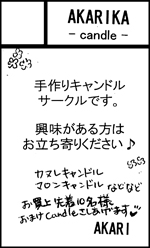 AKARIKA
- candle -
手作りキャンドル
サークルです。
興味がある方は
お立ち寄りください♪
カマレキャンドル
マロンキャンドル などなど
お買上先着10名様
おまけcandleさしあげます♡
AKARI